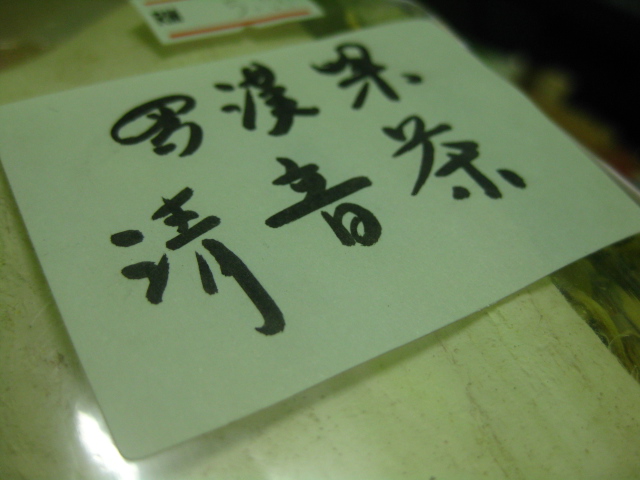 羅漢果
清音茶